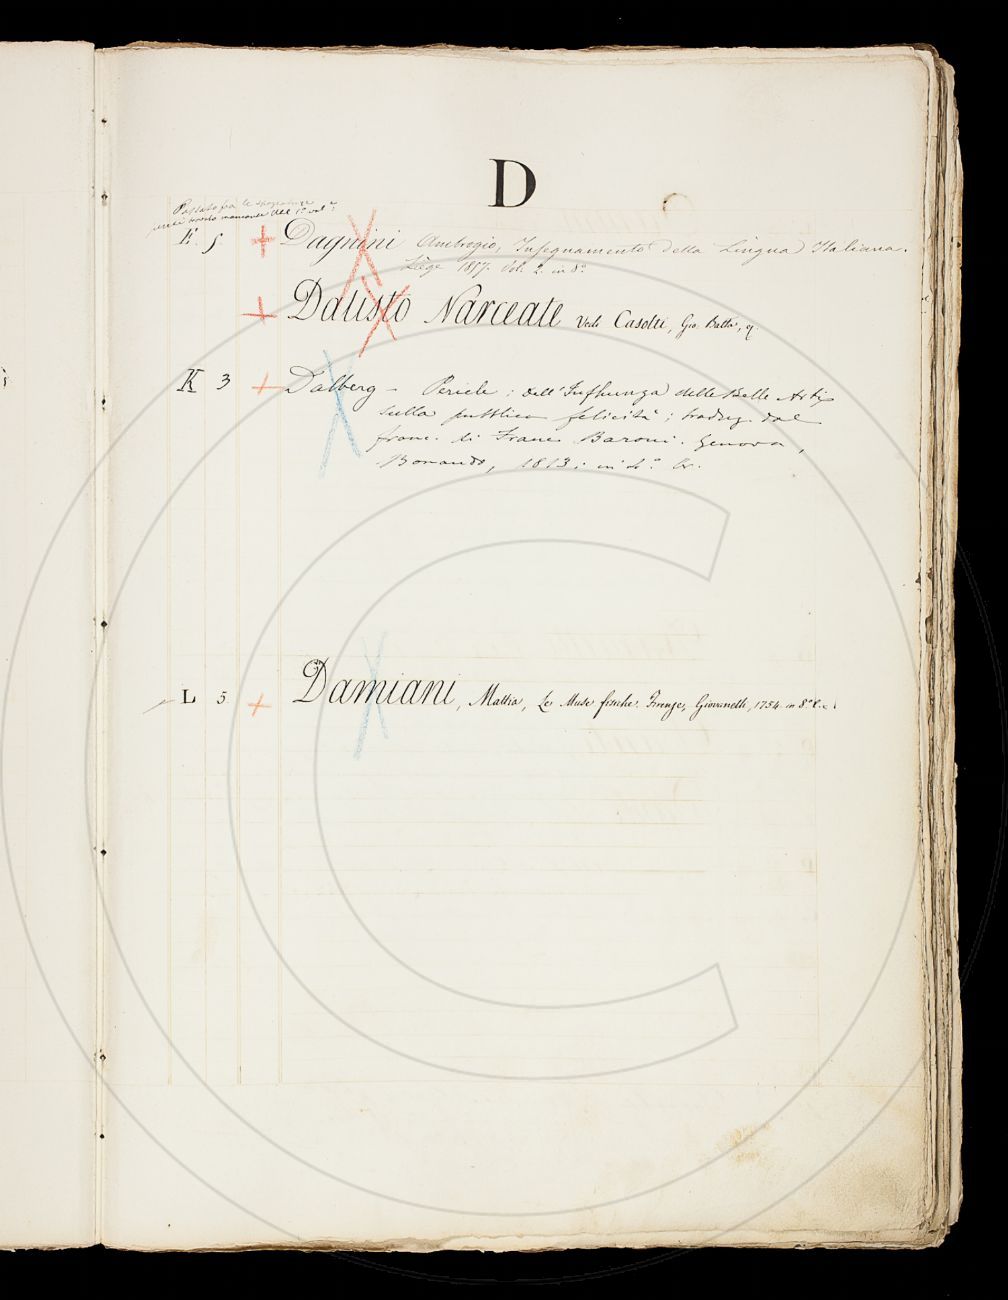 D
Passato fra le
del 1º vol:
E. 5 + Dagnini Ambrogio, Insegnamento della Lingua Italiana.
Liége 1857. Vol. 2. in 8º
+ Dalisto Narceate Vedi Casotti, Gio. Batta,
K 3 + Dalberg - Pericle: dell'Influenza delle Belle Arti
sulla pubblica felicità; traduz. dal
franc. di Franc. Baroni. Genova,
Bonaudo, 1813; in
L 5 + Damiani, Mattia, Le Muse fisiche. Firenze, Giovanelli, 1754. in 8º